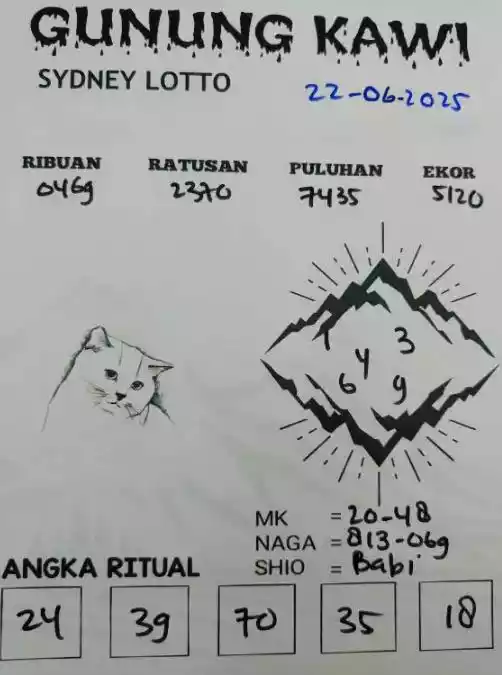 GUNUNG KAWI
SYDNEY LOTTO
22-06-2025
RIBUAN RATUSAN PULUHAN EKOR
0469 2370 7435 5120
1 3
4
6 9
MK = 20-48
NAGA = 813-069
SHIO = Babi
ANGKA RITUAL
24 39 70 35 18